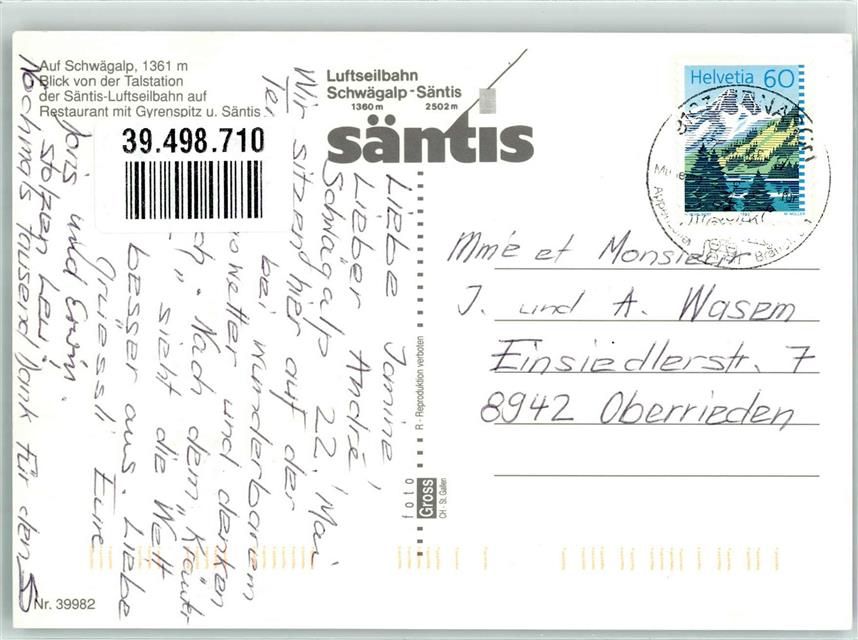 Auf Schwägalp, 1361 m
Blick von der Talstation
der Säntis-Luftseilbahn auf
Restaurant mit Gyrenspitz u. Säntis
39.498.710
Luftseilbahn
Schwägalp - Säntis
1360 m 2502 m
säntis
Helvetia 60
Liebe Janine,
Lieber André
Schwägalp 22. Mai
Wir sitzen hier auf der
bei wunderbarem
wetter und denken
Nach dem „Kräuter
" sieht die Welt
besser aus. Liebe
Gruessli Eure
Doris und Erwin.
Nochmals Tausend Dank für den
stolzen Leu!
R - Reproduktion verboten
foto
Gross
CH - St. Gallen
Mme et Monsieur
J. und A. Wasem
Einsiedlerstr. 7
8942 Oberrieden
Nr. 39982